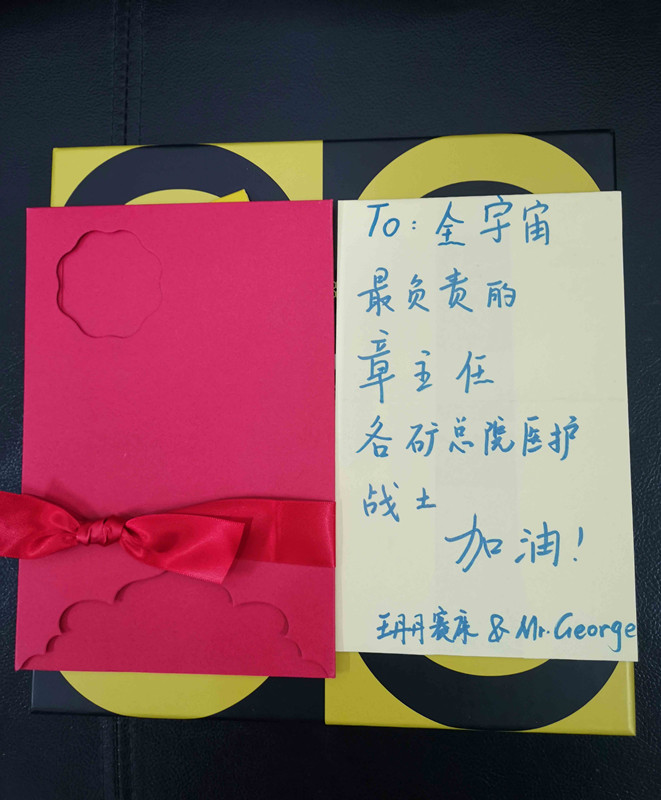 To: 全宇宙
最负责的
章主任
各矿总院医护
战士
加油!
王丹丹赛康 & Mr. George